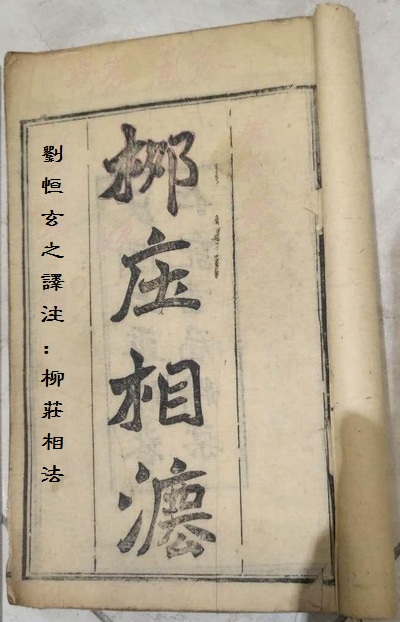 柳庄相灋
劉恒玄之譯注：柳莊相法